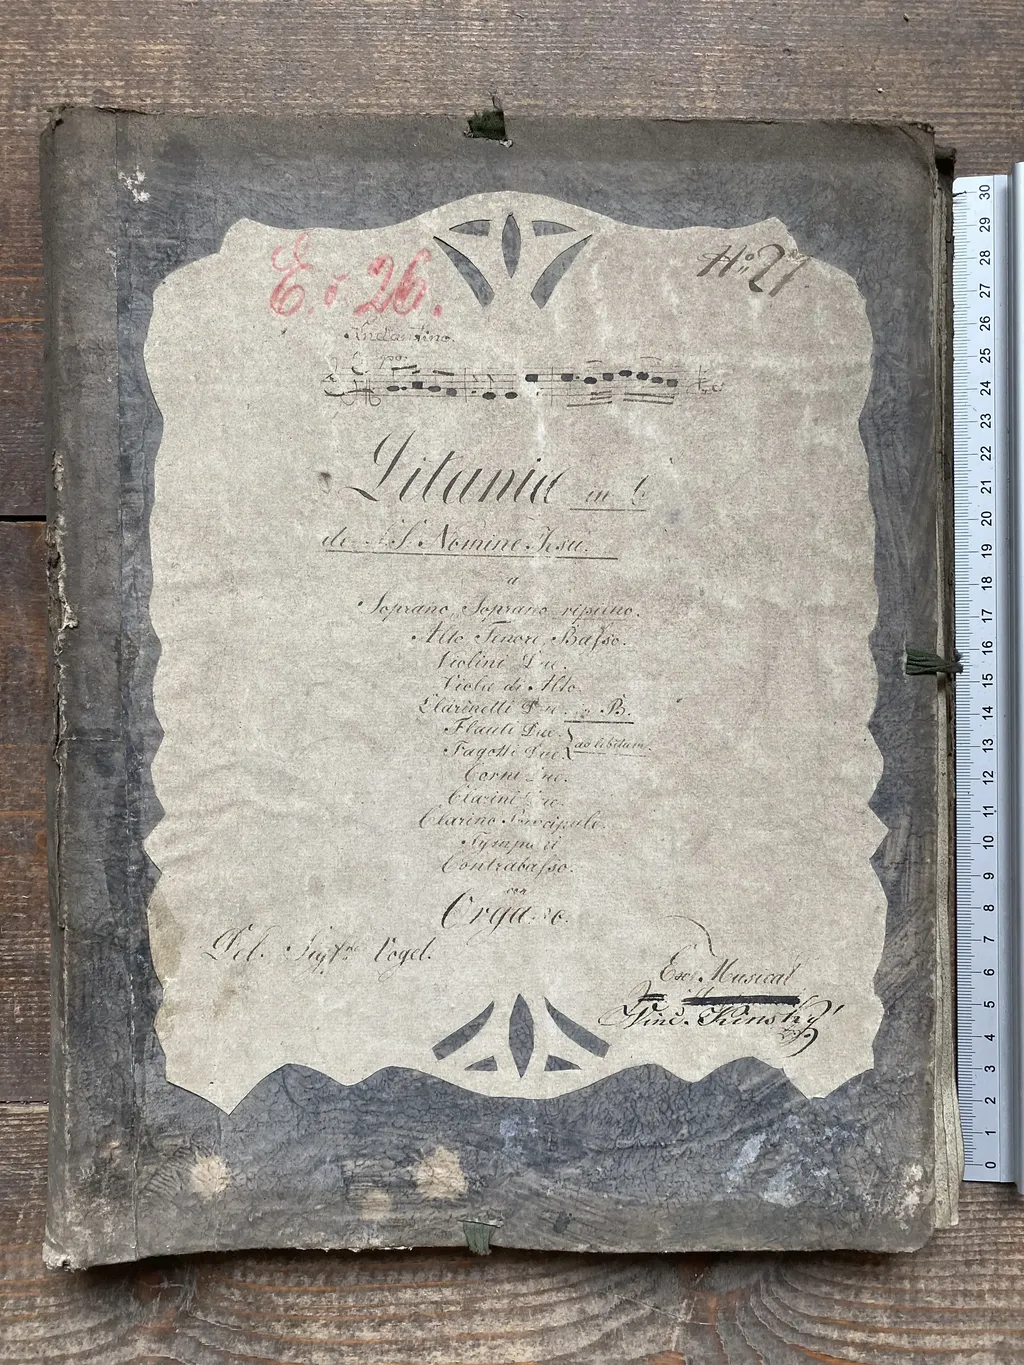 E. 26.
No 27.
Andantino.
Litaniæ in C
de S.S. Nomine Jesu.
a
Soprano, Soprano ripieno.
Alto Tenore Basso.
Violini Due.
Viola di Alto
Clarinetti Due in B.
Flauti Due.
Fagotti Due.
ad libitum.
Corni Due.
Clarini
Clarino Principale.
Tympani
Contrabasso.
con
Organo.
Del. Vogel.
Musical
Vinc. Kinsky
30
29
28
27
26
25
24
23
22
21
20
19
18
17
16
15
14
13
12
11
10
9
8
7
6
5
4
3
2
1
0